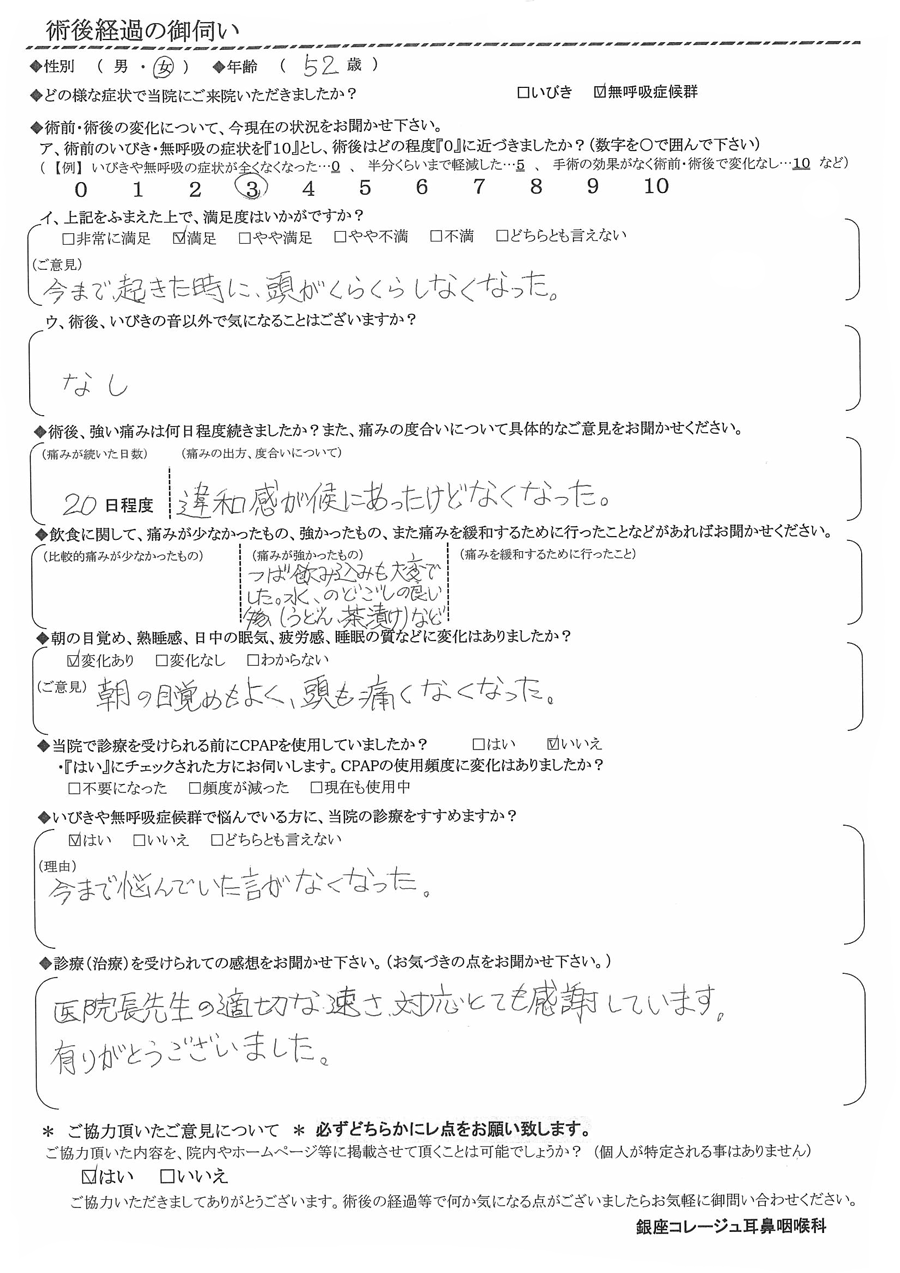 術後経過の御伺い
◆性別 （ 男 ・ 女 ） ◆年齢 （ 52 歳 ）
◆どの様な症状で当院にご来院いただきましたか？ □いびき ☑無呼吸症候群
◆術前・術後の変化について、今現在の状況をお聞かせ下さい。
ア、術前のいびき・無呼吸の症状を『10』とし、術後はどの程度『0』に近づきましたか？（数字を○で囲んで下さい）
（【例】いびきや無呼吸の症状が全くなくなった…0 、 半分くらいまで軽減した…5 、 手術の効果がなく術前・術後で変化なし…10 など）
0 1 2 3 4 5 6 7 8 9 10
イ、上記をふまえた上で、満足度はいかがですか？
□非常に満足 ☑満足 □やや満足 □やや不満 □不満 □どちらとも言えない
（ご意見）
今まで、起きた時に、頭がくらくらしなくなった。
ウ、術後、いびきの音以外で気になることはございますか？
なし
◆術後、強い痛みは何日程度続きましたか？また、痛みの度合いについて具体的なご意見をお聞かせください。
（痛みが続いた日数） （痛みの出方、度合いについて）
20 日程度 違和感が候にあったけどなくなった。
◆飲食に関して、痛みが少なかったもの、強かったもの、また痛みを緩和するために行ったことなどがあればお聞かせください。
（比較的痛みが少なかったもの） （痛みが強かったもの） （痛みを緩和するために行ったこと）
つば飲み込みも大変で
した。水、のどごしの良い
物（うどん、茶漬け）など
◆朝の目覚め、熟睡感、日中の眠気、疲労感、睡眠の質などに変化はありましたか？
☑変化あり □変化なし □わからない
（ご意見） 朝の目覚めもよく、頭も痛くなくなった。
◆当院で診療を受けられる前にCPAPを使用していましたか？ □はい ☑いいえ
・『はい』にチェックされた方にお伺いします。CPAPの使用頻度に変化はありましたか？
□不要になった □頻度が減った □現在も使用中
◆いびきや無呼吸症候群で悩んでいる方に、当院の診療をすすめますか？
☑はい □いいえ □どちらとも言えない
（理由）
今まで悩んでいた言がなくなった。
◆診療（治療）を受けられての感想をお聞かせ下さい。（お気づきの点をお聞かせ下さい。）
医院長先生の適切な速さ、対応とても感謝しています。
有りがとうございました。
＊ ご協力頂いたご意見について ＊ 必ずどちらかにレ点をお願い致します。
ご協力頂いた内容を、院内やホームページ等に掲載させて頂くことは可能でしょうか？ （個人が特定される事はありません）
☑はい □いいえ
ご協力いただきましてありがとうございます。術後の経過等で何か気になる点がございましたらお気軽に御問い合わせください。
銀座コレージュ耳鼻咽喉科